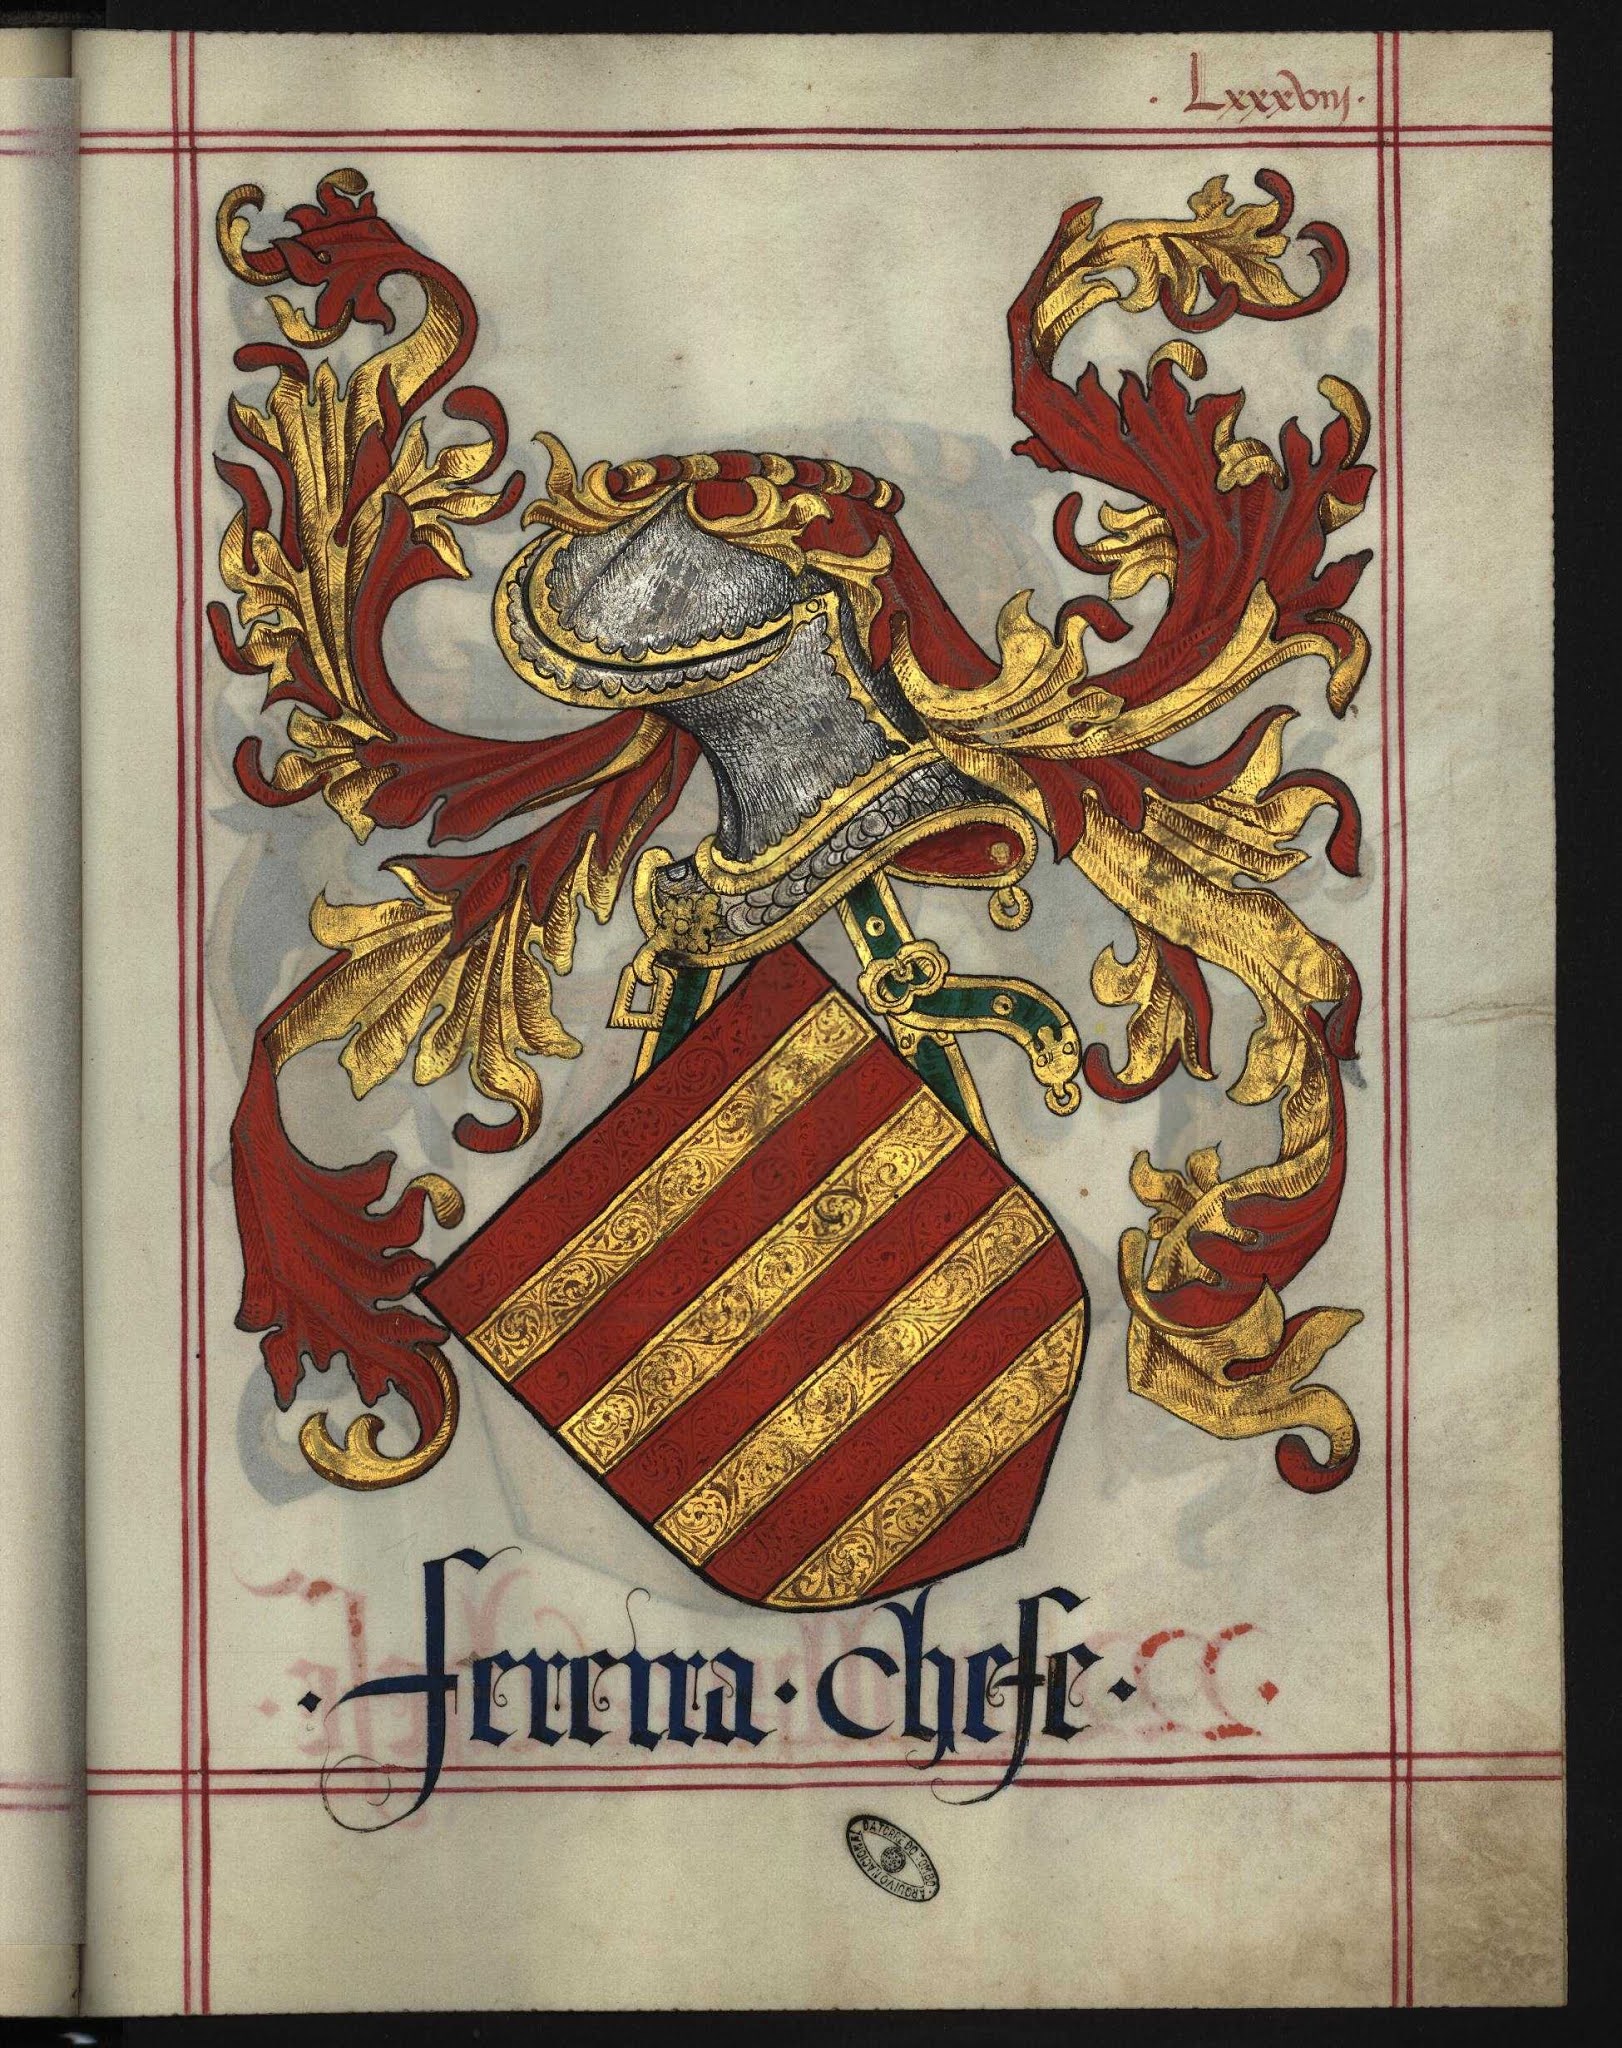 · Lxxxviij ·
· fereira · chefe ·
ARQUIVO NACIONAL DA TORRE DO TOMBO